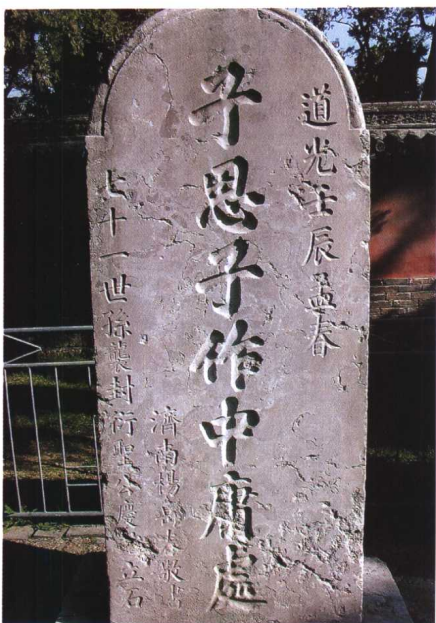 道光壬辰孟春
子思子作中庸處
濟南楊岳春敬書
七十一世孫襲封衍聖公慶立石